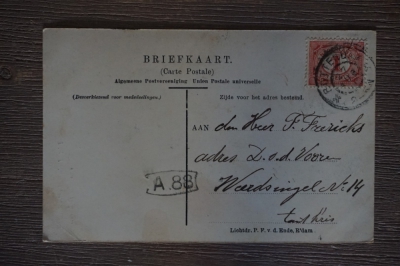 BRIEFKAART.
(Carte Postale)
Algemeene Postvereeniging Union Postale universelle
(Benedenrand voor mededeelingen.)
Zijde voor het adres bestemd.
AAN den Heer F. Frerichs
adres D. v. d. Voore
Weerdsingel No 14
A.88
Lichtdr. P. P. v. d. Ende, R'dam